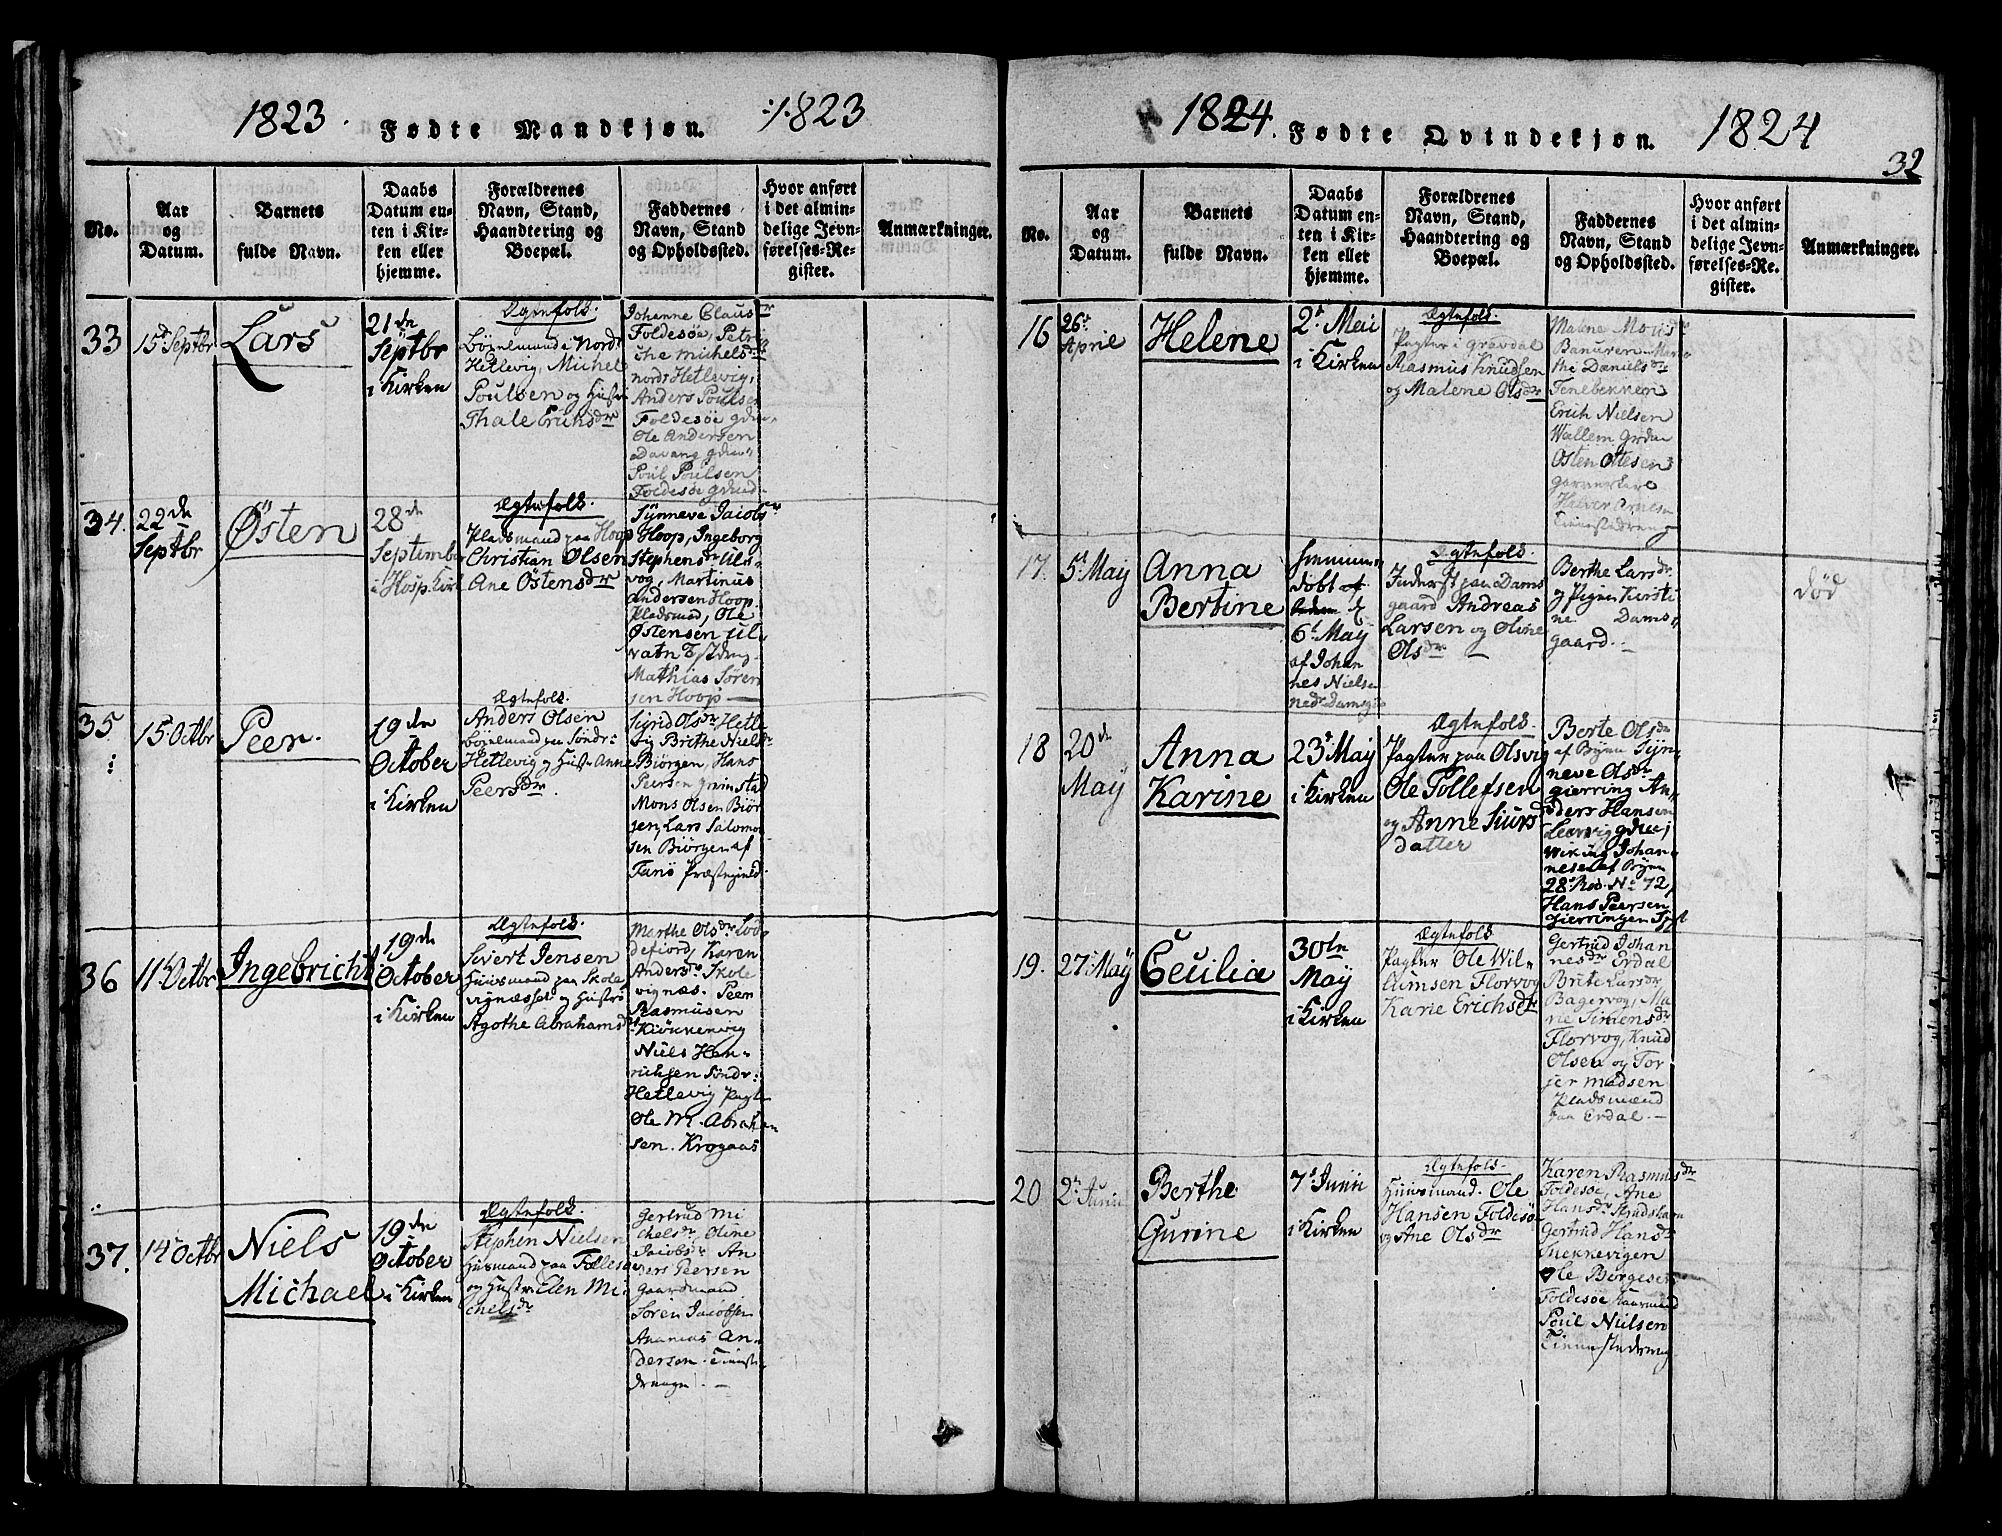 1823. Fødte Mandkjøn. 1823
No.
Aar
og
Datum.
Barnets
fulde Navn.
Daabs
Datum en-
ten i Kir-
ken eller
hjemme.
Forældrenes
Navn, Stand,
Haandtering og
Boepæl.
Faddernes
Navn, Stand
og Opholdssted.
Hvor anført
i det almin-
delige Jevn-
førelses-Re-
gister.
Anmærkninger.
33
15d Septbr
Lars
21de
Septbr
i Kirken
Ægtefolk.
Nordr
Hetlevig, Michel
Poulsen og Hustr
Thale Erichsdr
Johanne Clausdr
Foldesøe, Petri
che Michelsdr
nordr Hetlevig,
Anders Poulsen
Foldesøe
Ole Andersen
Poul Poulsen
Foldesøe
34.
22de
Septbr
Østen
28de
September
i Hosp. Kirk
Ægtefolk.
Pladsmand paa Hoop
Christian Olsen
Ane Østensdr
Synneve Jacobsdr
Hoop, Ingeborg
Stephensdr Ul
vog, Martinus
Andersen Hoop
Pladsmd, Ole
Østensen Ul
vatn
Mathias Sören
sen Hoop
35
15. Octbr
Peer.
19de
October
i Kirken
Ægtefolk.
Anders Olsen
paa Söndr
Hetlevig og Hustr Anne
Peersdr.
Sigrid Olsdr Hetle
vig Brithe Nielsdr
Biörgen, Hans
Peersen
Mons Olsen Biör
gen, Lars Salomon
sen Biörgen af
Fanö Præstegield
36
11. Octbr
Ingebricht
19de
October
i Kirken
Ægtefolk.
Sivert Jensen
Huusmand paa Skole
vignæsset og Huströ
Agothe Abrahamsdr
Marthe Olsdr Lod
defiord, Karen
Andersdr Skole
vignæs. Peer
Rasmusen
Kiökkenvig
Niels Hen-
richsen Söndr
Hetlevig Pagt
Ole M. Abraham
sen. Krogaas
37.
14. Octbr
Niels
Michael
19de
October
i Kirken
Ægtefolk.
Stephen Nielsen
Huusmand paa Follesøe
og Hustr Elen Mi
chelsdr
Gertrud Mi
chelsdr, Oline
Jacobsdr An
ders Peersen
Gaardmand
Sören Jacobsen
Ananias An-
dersen.
drenge. —
1824. Fødte Qvindekjøn. 1824
32
No.
Aar
og
Datum.
Barnets
fulde Navn.
Daabs
Datum en-
ten i Kir-
ken eller
hjemme.
Forældrenes
Navn, Stand,
Haandtering og
Boepæl.
Faddernes
Navn, Stand
og Opholdssted.
Hvor anført
i det almin-
delige Jevn-
førelses-Re-
gister.
Anmærkninger.
16
26d
Aprie
Helene
2d Mai
i Kirken
Ægtefolk.
Pagter i Gravdal
Rasmus Knudsen
og Malene Olsdr
Malene Monsdr
Banuren
the Danielsdr
Tenebekken
Erich Nielsen
Wallem
Osten Ottesen
Halver
17.
5. May
Anna
Bertine
döbt af
6t May
af Johan
nes Nielsen
Ægtefolk.
Inderst paa Dams
gaard Andreas
Larsen og Oline
Olsdr —
Berthe Larsdr
og Pigen Kirsti
ne Dams
gaard. —
död
18
20de
May
Anna
Karine
23. May
i Kirken
Ægtefolk.
Pagter paa Olsvig
Ole Tollefsen
og Anne Siurs
datter
Berte Olsdr
af Byen Syn
neve Olsdr
Gierring An
ders Hansen
Leervig
Wiking Johan
nesen af Byen
28. Rod. No 72,
Hans Peersen
Gierringen
19.
27. May
Cecilia
30te
May
i Kirken
Ægtefolk
Pagter Ole Wil-
lumsen Florvog
Karie Erichsdr
Gertrud Johan
nesdr Erdal
Brite Larsdr
Bagervog, Ma
rie Simensdr
Florvog, Knud
Olsen og Tor
ger Madsen
Pladsmænd
paa Erdal. —
20
2. Junii
Berthe
Gurine
7. Junii
i Kirken
Ægtefolk.
Huusmand. Ole
Hansen Foldesøe
og Ane Olsdr
Karen Rasmusdr
Foldesøe, Ane
Hansdr
Gertrud Hansdr
Snekkevigen
Ole Borgesen
Foldesøe Gaardmand
Poul Nielsen
Tienestedreng